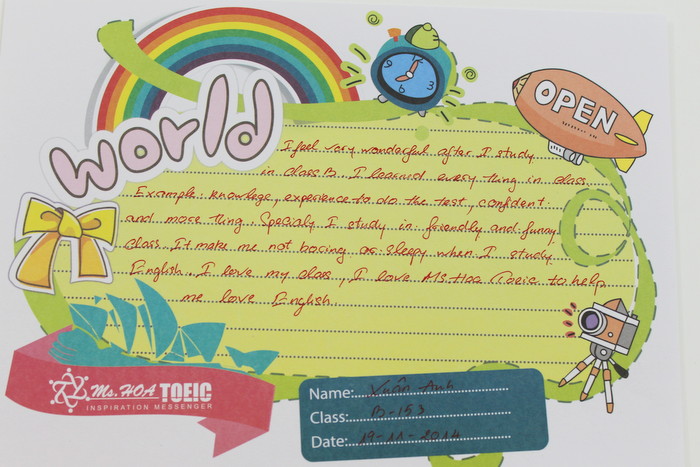 world
OPEN
I feel very wonderful after I study
in class B. I learned every thing in class.
Example: knowlege, experience to do the test, confident.
and more thing. Specialy I study in friendly and funny
class. It make me not boring or sleepy when I study
English. I love my class, I love Ms. Hoa Toeic to help
me love English.
Ms. HOA TOEIC
INSPIRATION MESSENGER
Name: Xuân Anh
Class: B-153
Date: 19-11-2014